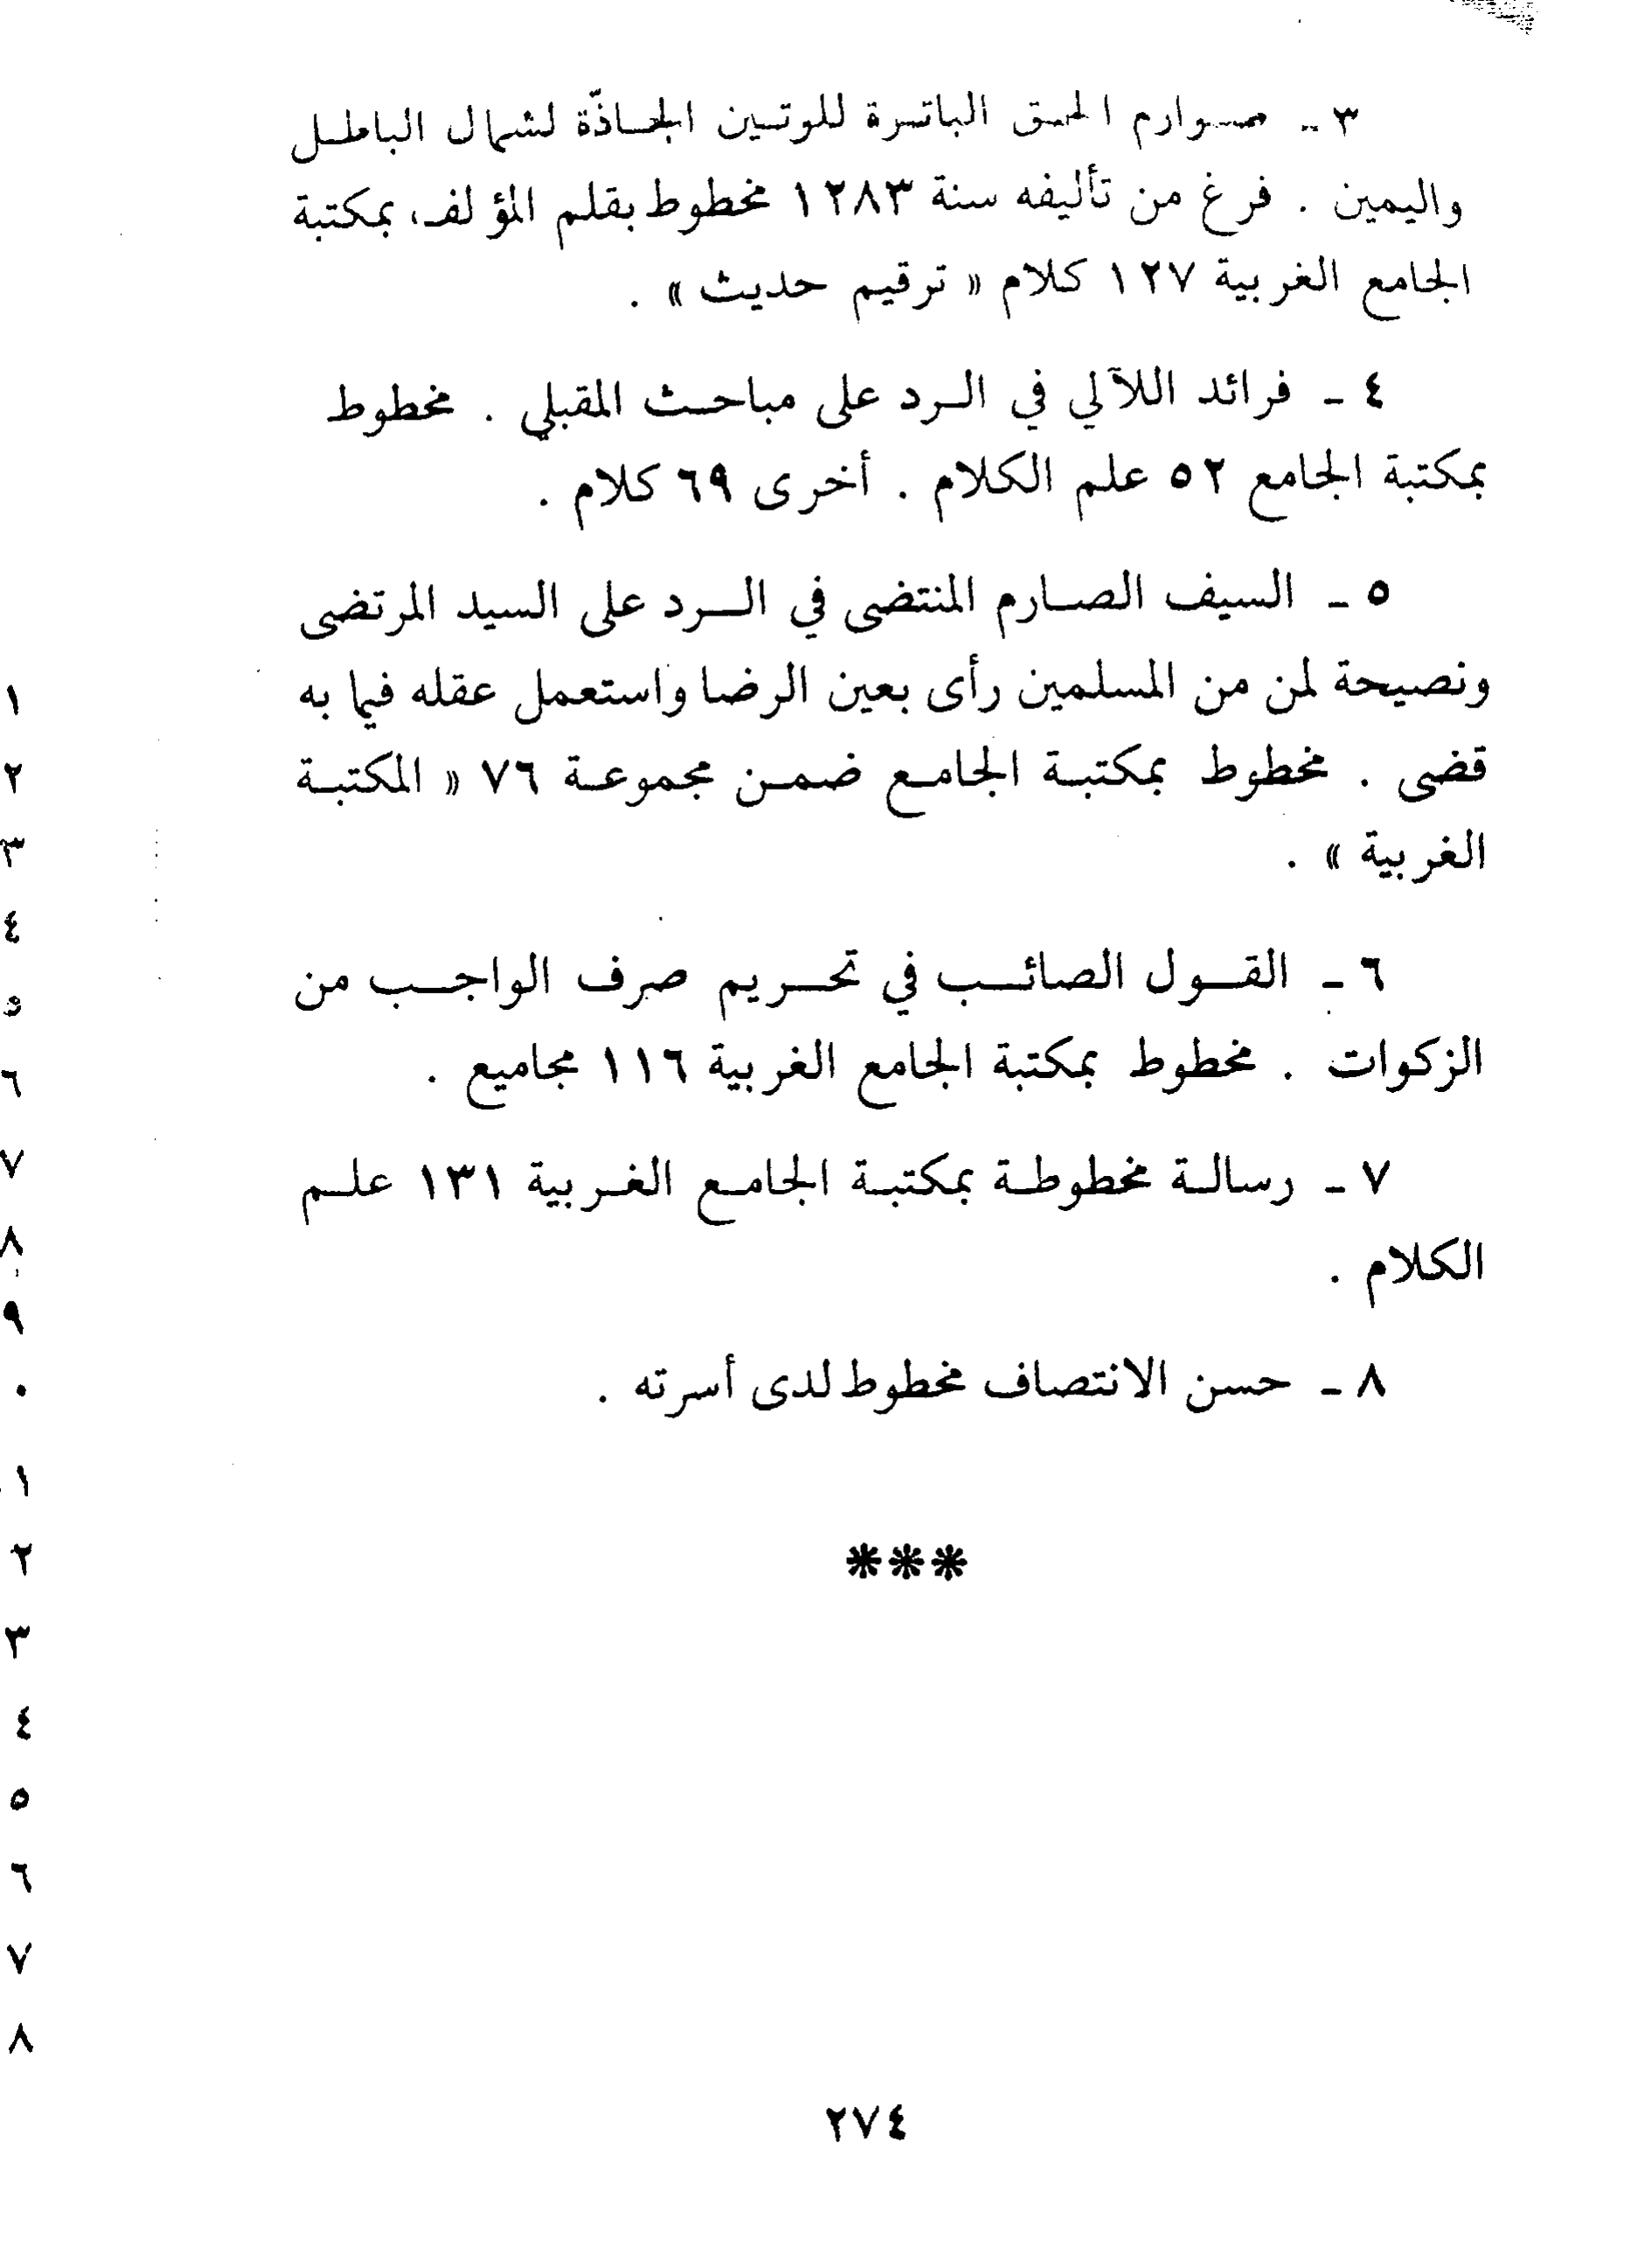 ٣ - صوارم الحق الباترة للوتين الجاذّة لشمال الباطل
واليمين . فرغ من تأليفه سنة ١٢٨٣ مخطوط بقلم المؤلف، بمكتبة
الجامع الغربية ١٢٧ كلام « ترقيم حديث » .
٤ - فرائد اللآلي في الرد على مباحث المقبلي . مخطوط
بمكتبة الجامع ٥٢ علم الكلام . أخرى ٦٩ كلام .
٥ - السيف الصارم المنتضى في الرد على السيد المرتضى
ونصيحة لمن من المسلمين رأى بعين الرضا واستعمل عقله فيما به
قضى . مخطوط بمكتبة الجامع ضمن مجموعة ٧٦ « المكتبة
الغربية » .
٦ - القول الصائب في تحريم صرف الواجب من
الزكوات . مخطوط بمكتبة الجامع الغربية ١١٦ مجاميع .
٧ - رسالة مخطوطة بمكتبة الجامع الغربية ١٣١ علم
الكلام .
٨ - حسن الانتصاف مخطوط لدى أسرته .
***
١
٢
٣
٤
٥
٦
٧
٨
٩
٠
١
٢
٣
٤
٥
٦
٧
٨
٢٧٤